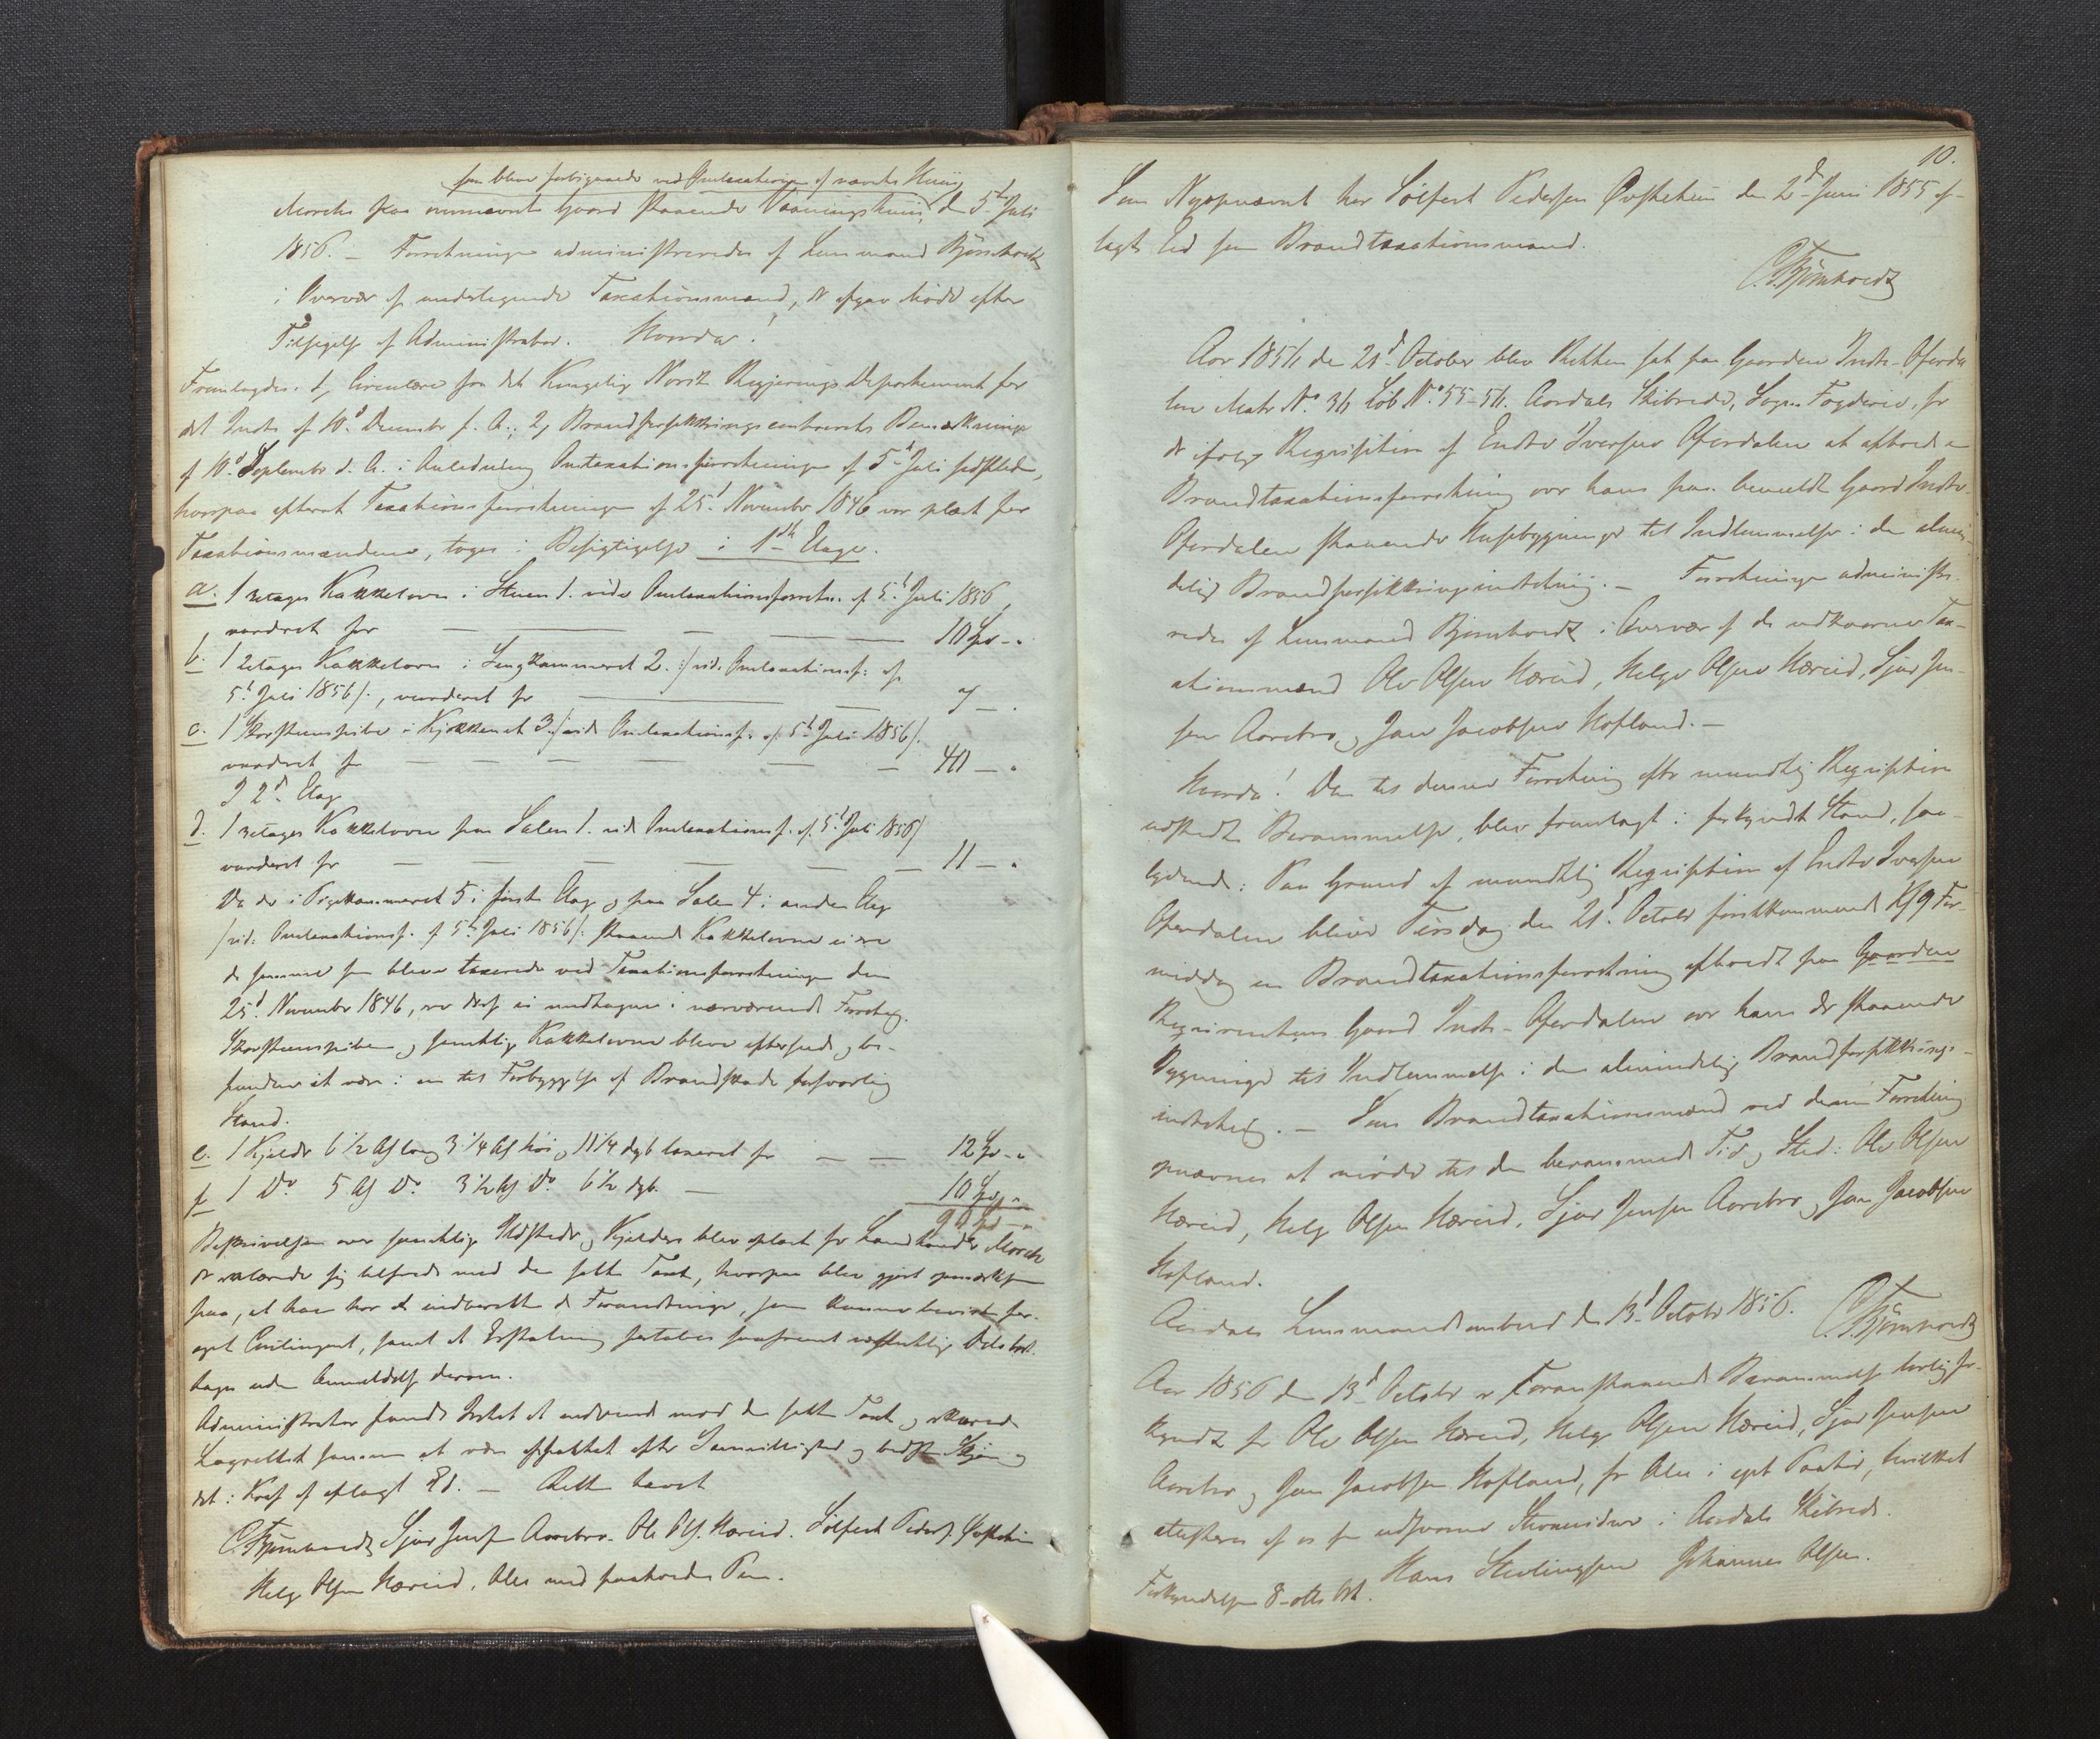 som bleve forbigaaede ved Omtaxationen af nævnte Huus
Morchs paa ommeldte Gaard staaende Vaaningshuus, d 5te Juli
1856. – Forretningen administreredes af Lensmand Bjørnhordt
i Overvær af undertegnede Taxationsmænd, der afgav Møde efter
Tilsigelse af Administrator. Hvorda!
Fremlagdes. 1, Circulære fra det Kongelig Norsk Regjerings Departement for
det Indre af 10d December f. A.; 2, Brandforsikkringscontoirets Bemærkninger
af 10d September d. A. i Anledning Omtaxationsforretningen af 5te Juli sidstleden,
hvorpaa efterat Taxationsforretningen af 25d November 1846 var oplæst for
Taxationsmændene, toges i Besigtigelse i 1ste Etage.
a. 1 2etages Kakkelovn i Stuen 1. vide Omtaxationsforretn. af 5te Juli 1856,
vurderet for — — — — 10 Spd - „
b. 1 2etages Kakkelovn i Sengkammeret 2. :/ vid. Omtaxationsf: af
5te Juli 1856/:, vurderet for — — 7 – „
c. 1 Skorsteenspibe i Kjøkkenet 3 :/ vide Omtaxationsf. af 5te Juli 1856/.
vurderet for — — — — — — 40 – „
I 2d Etage
d. 1 2etages Kakkelovn paa Salen 1. vid Omtaxationsf. af 5te Juli 1856/
vurderet for — — — — — — 11 – „
Da de i Pigekammeret 5 i første Etage og paa Salen 4 i anden Etage
/vid: Omtaxationsf. af 5te Juli 1856/: staaende Kakkelovne ere
de samme som bleve taxerede ved Taxationsforretningen den
25d November 1846, ere disse ei medtagne i nærværende Forretng.
Skorsteenspiben og samtlige Kakkelovne bleve efterseede og be-
fundne at være i en til Forbyggelse af Brandskade forsvarlig
Stand.
e. 1 Kjelder 6 1/2 Al lang 3 1/4 Al høi og 11 1/4 dyb taxeret for — — 12 Spd - „
f 1 Do 5 Al Do 3 1/2 Al Do 6 1/2 dyb. — 10 Spd - „
90 Spd - „
Beskrivelsen over samtlige Ildsteder og Kjeldere blev oplæst for Landhandler Morch
der erklærede sig tilfreds med den satte Taxt, hvorpaa blev gjort opmærksom
paa, at han har at indberette de Forandringer, som kunne bevirke for-
øget Contingent, samt at Erstatning fortabes saafremt
tages uden Anmeldelse derom.
Administrator fandt Intet at indvende mod den satte Taxt og erklærede
Lagrettet samme at være affattet efter Samvittighed og bedste Skjøn og
det i Kraft af aflagt Ed. — Retten hævet
C. Bjørnhordt Sjur Jensen Aarebro. Ole Ols. Hæreid. Sølfest Peders. Øvstetun
Helge Olsen Hæreid, Alle med paaholden Pen.
10.
Som Nyopnævnt har Sølfest Pedersen Øvstetun den 2d Juni 1855 af-
lagt Ed som Brandtaxationsmand.
C. Bjørnhordt
Aar 1856 den 21d October blev Retten sat paa Gaarden Indre-Ofreda
len Matr No. 36 Løb No. 55-56. Aardals Skibrede, Sogns Fogderie, for
der ifølge Reqvisition af Endre Iversen Ofredalen at afholde en
Brandtaxationsforretning over hans paa bemeldte Gaard Indre-
Ofredalen staaende Huusbygninger til Indlemmelse i den almin-
delig Brandforsikkringsindretning. – Forretningen administre-
redes af Lensmand Bjørnhordt i Overvær af de udkaarne Tax-
ationsmænd Ole Olsen Hæreid, Helge Olsen Hæreid, Sjur Jen-
sen Aarebro og Jan Jacobsen Hofland. –
Hvorda! Den til denne Forretning efter mundtlig Reqvisition
udstedte Berammelse, blev fremlagt i forkyndt Stand, saa-
lydende: Paa Grund af mundtlig Reqvisition af Endre Iversen
Ofredalen bliver Tirsdag den 21d October førstkommende Kl 9 For
middag en Brandtaxationsforretning afholdt paa Gaarden
Reqvirentens Gaard Indre-Ofredalen over hans der staaende
Bygninger til Indlemmelse i den almindelig Brandforsikkrings-
indretng. – Som Brandtaxationsmænd ved denne Forretning
opnævnes at møde til den berammede Tid og Sted: Ole Olsen
Hæreid, Helge Olsen Hæreid, Sjur Jensen Aarebro og Jan Jacobsen
Hofland.
Aardals Lensmandsembed den 13d October 1856. C. Bjørnhordt
Aar 1856 den 13d October er Foranstaaende Berammelse lovlig for-
kyndt for Ole Olsen Hæreid, Helge Olsen Hæreid, Sjur Jensen
Aarebro og Jan Jacobsen Hofland, for Alle i eget Paahør, hvilket
attesteres af os som edsvorne Stevnevidner i Aardals Skibrede.
Hans Johannes Olsen.
Forkyndelsen 8 - otte Ort.